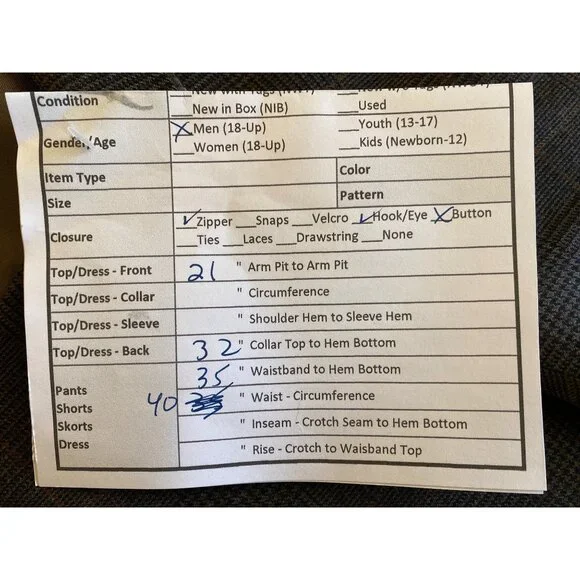 Condition
___New in Box (NIB) ___Used
Gender/Age X Men (18-Up) ___Youth (13-17)
___Women (18-Up) ___Kids (Newborn-12)
Item Type Color
Size Pattern
Closure ✓ Zipper ___Snaps ___Velcro ✓ Hook/Eye X Button
___Ties ___Laces ___Drawstring ___None
Top/Dress - Front 21 " Arm Pit to Arm Pit
Top/Dress - Collar " Circumference
Top/Dress - Sleeve " Shoulder Hem to Sleeve Hem
Top/Dress - Back 32 " Collar Top to Hem Bottom
Pants 35 " Waistband to Hem Bottom
Shorts 40 " Waist - Circumference
Skorts " Inseam - Crotch Seam to Hem Bottom
Dress " Rise - Crotch to Waisband Top